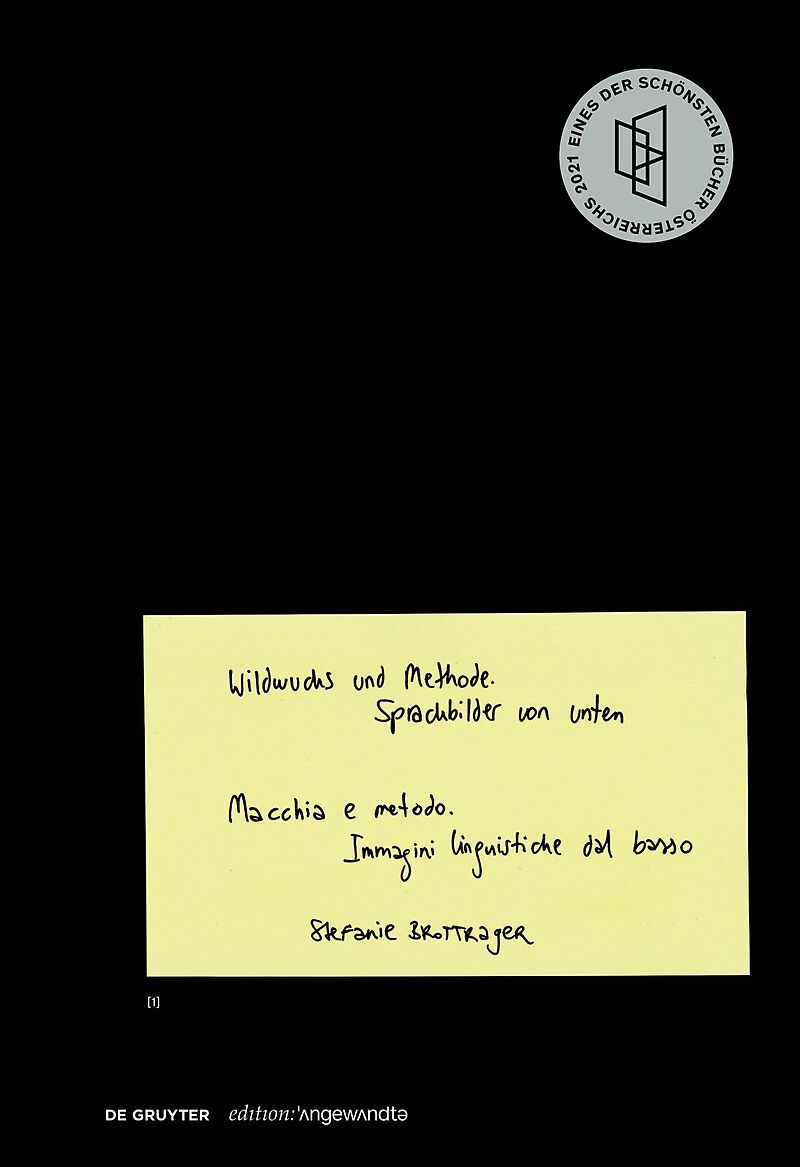 EINES DER SCHÖNSTEN BÜCHER ÖSTERREICHS 2021
Wildwuchs und Methode.
Sprachbilder von unten
Macchia e metodo.
Immagini linguistiche dal basso
Stefanie BROTTRAGER
[1]
DE GRUYTER edition:'ʌngewʌndtə